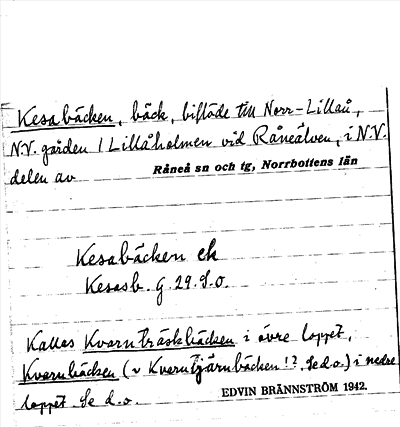 Kesabäcken, bäck, biflöde till Norr-Lillån,
N.V. gården 1 Lillåholmen vid Råneälven, i N.V.
delen av Råneå sn och tg, Norrbottens län
Kesabäcken ek
Kesasb. G. 29. S.o.
Kallas Kvarnträskbäcken i övre loppet,
Kvarnbäcken (v Kvarntjärnbäcken!? Se d.o.) i nedre
loppet Se d.o. EDVIN BRÄNNSTRÖM 1942.